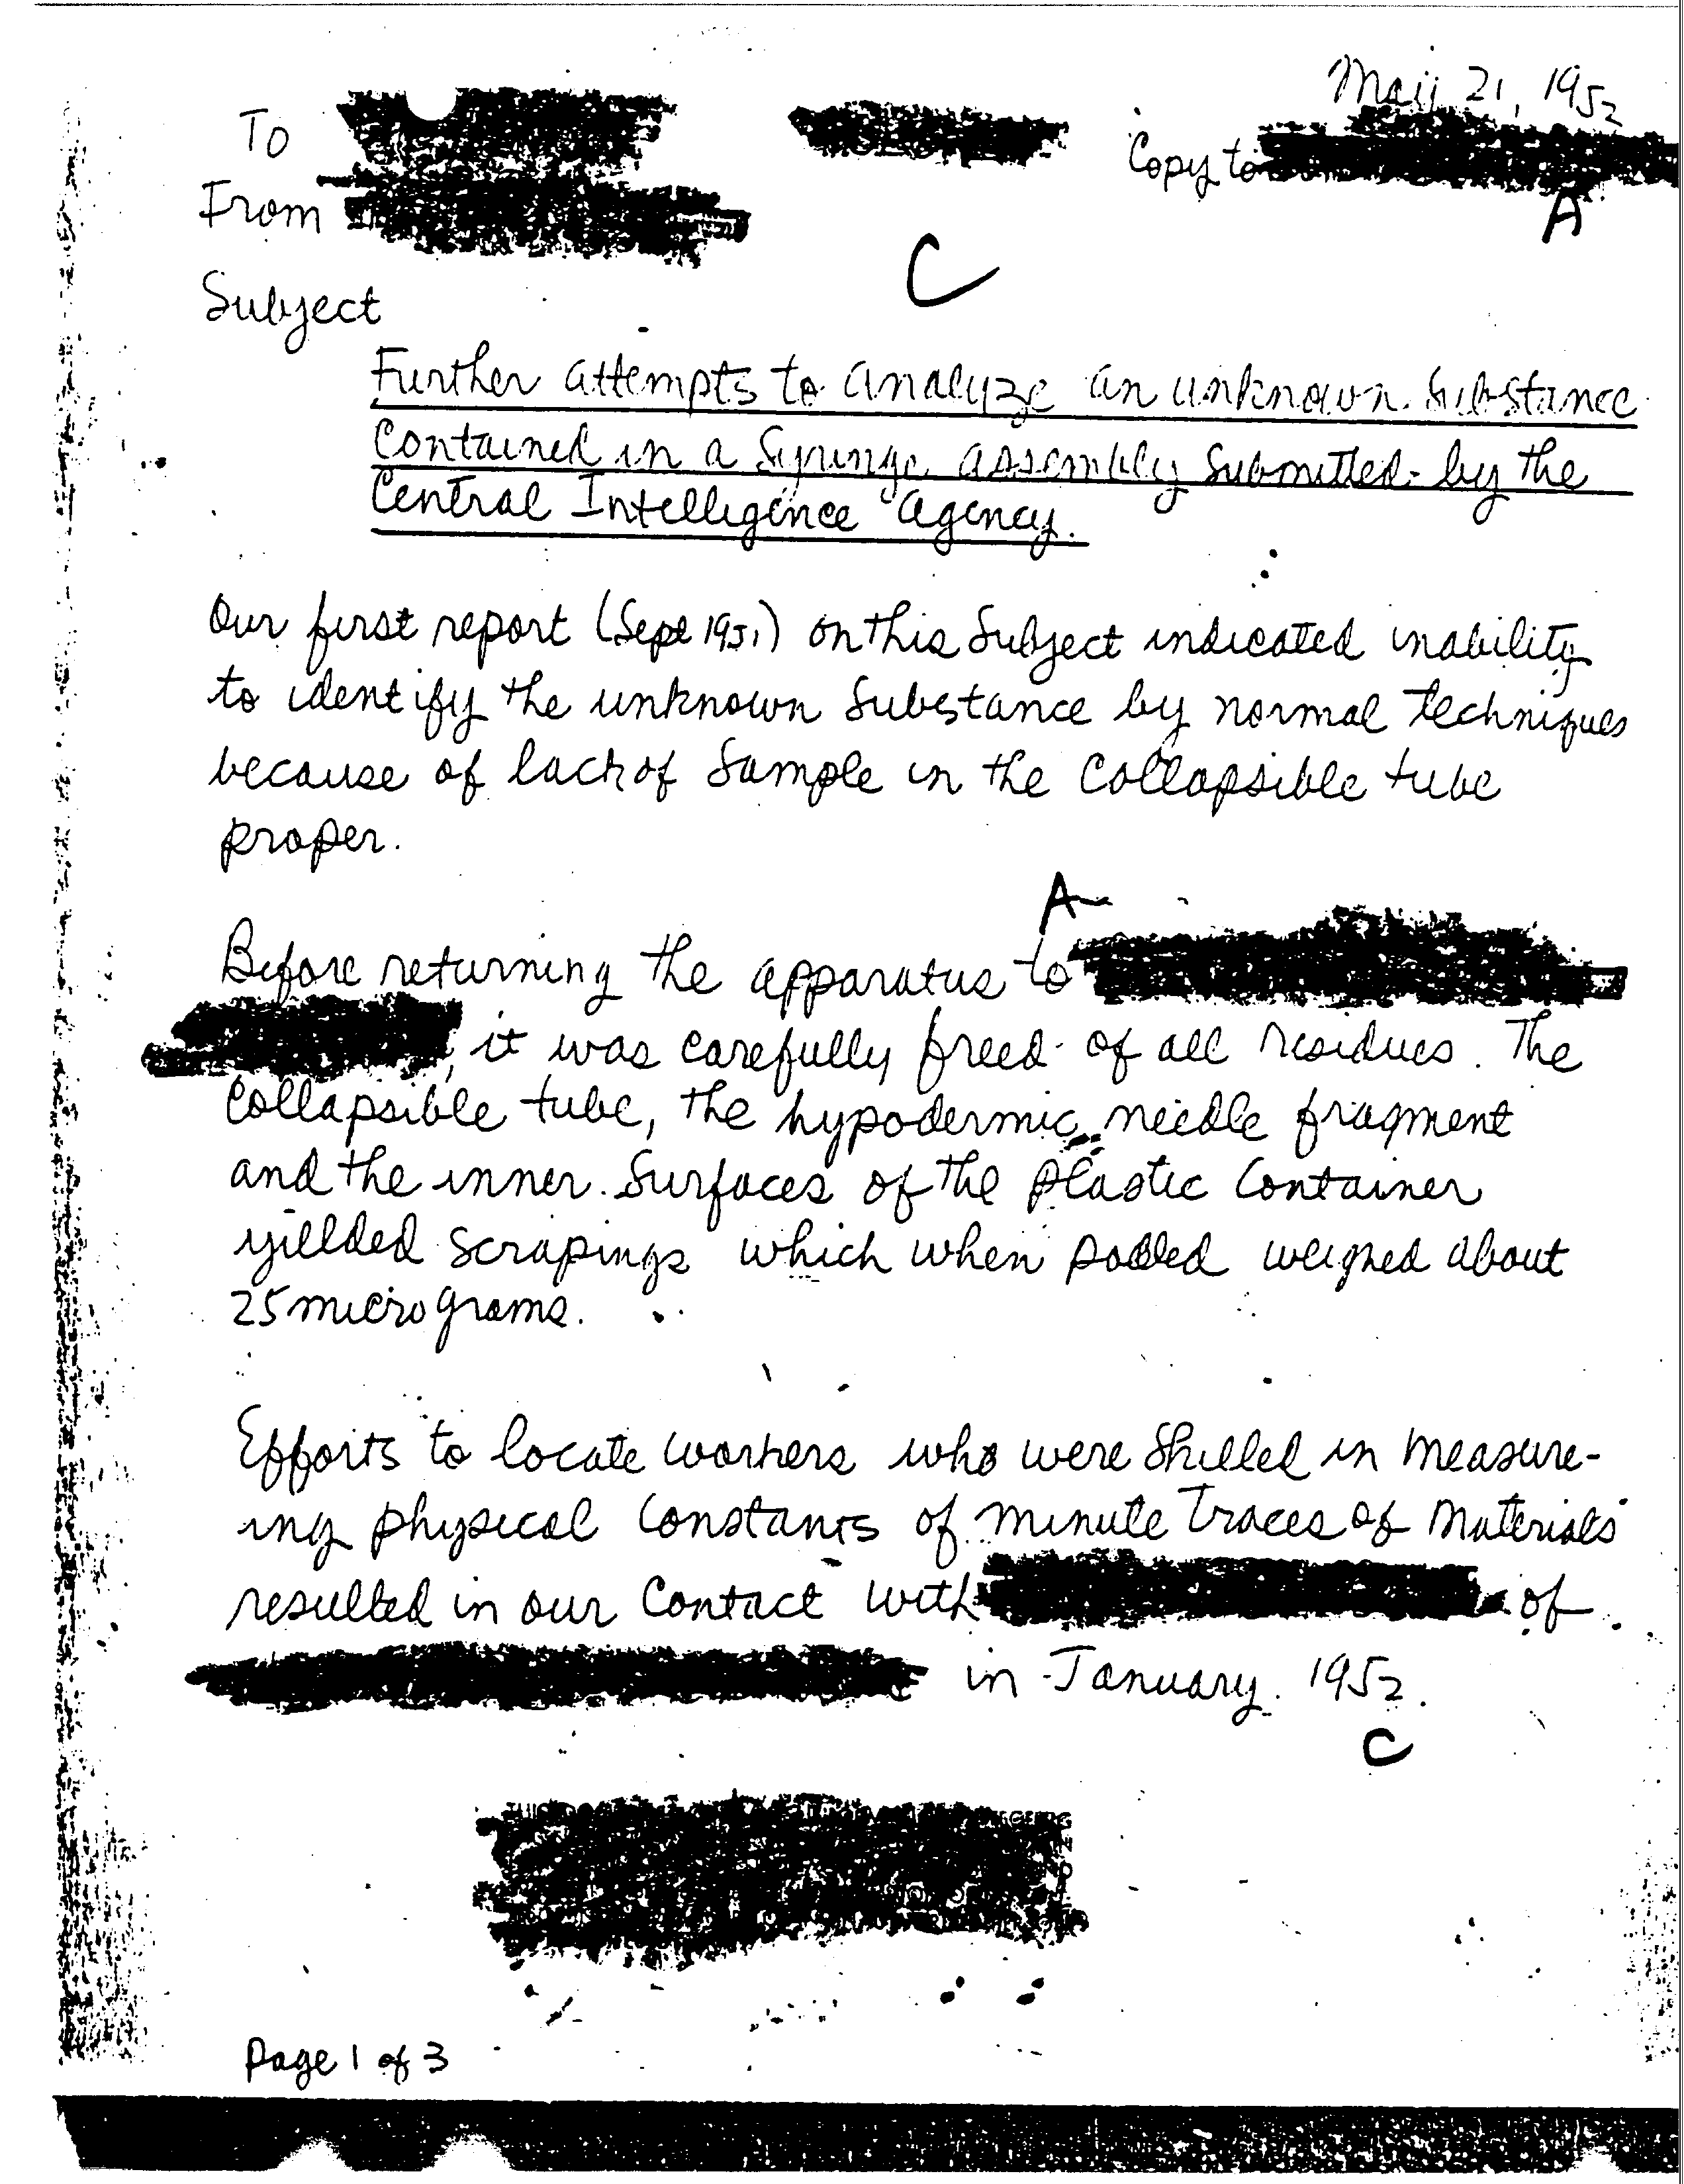 May 21, 1952
To
Copy to
From
A
C
Subject
Further attempts to analyze an unknown substance
Contained in a Syringe assembly Submitted by the
Central Intelligence Agency.
Our first report (Sept 1951) on this Subject indicated inability
to identify the unknown Substance by normal techniques
because of lack of Sample in the Collapsible tube
proper.
A
Before returning the apparatus to
, it was carefully freed of all residues. The
Collapsible tube, the hypodermic needle fragment
and the inner Surfaces of the plastic Container
yillded scrapings which when pooled weighed about
25 micrograms.
Efforts to locate workers who were Skilled in measure-
ing physical Constants of minute traces of Materials
resulted in our Contact with of
in January 1952.
C
Page 1 of 3